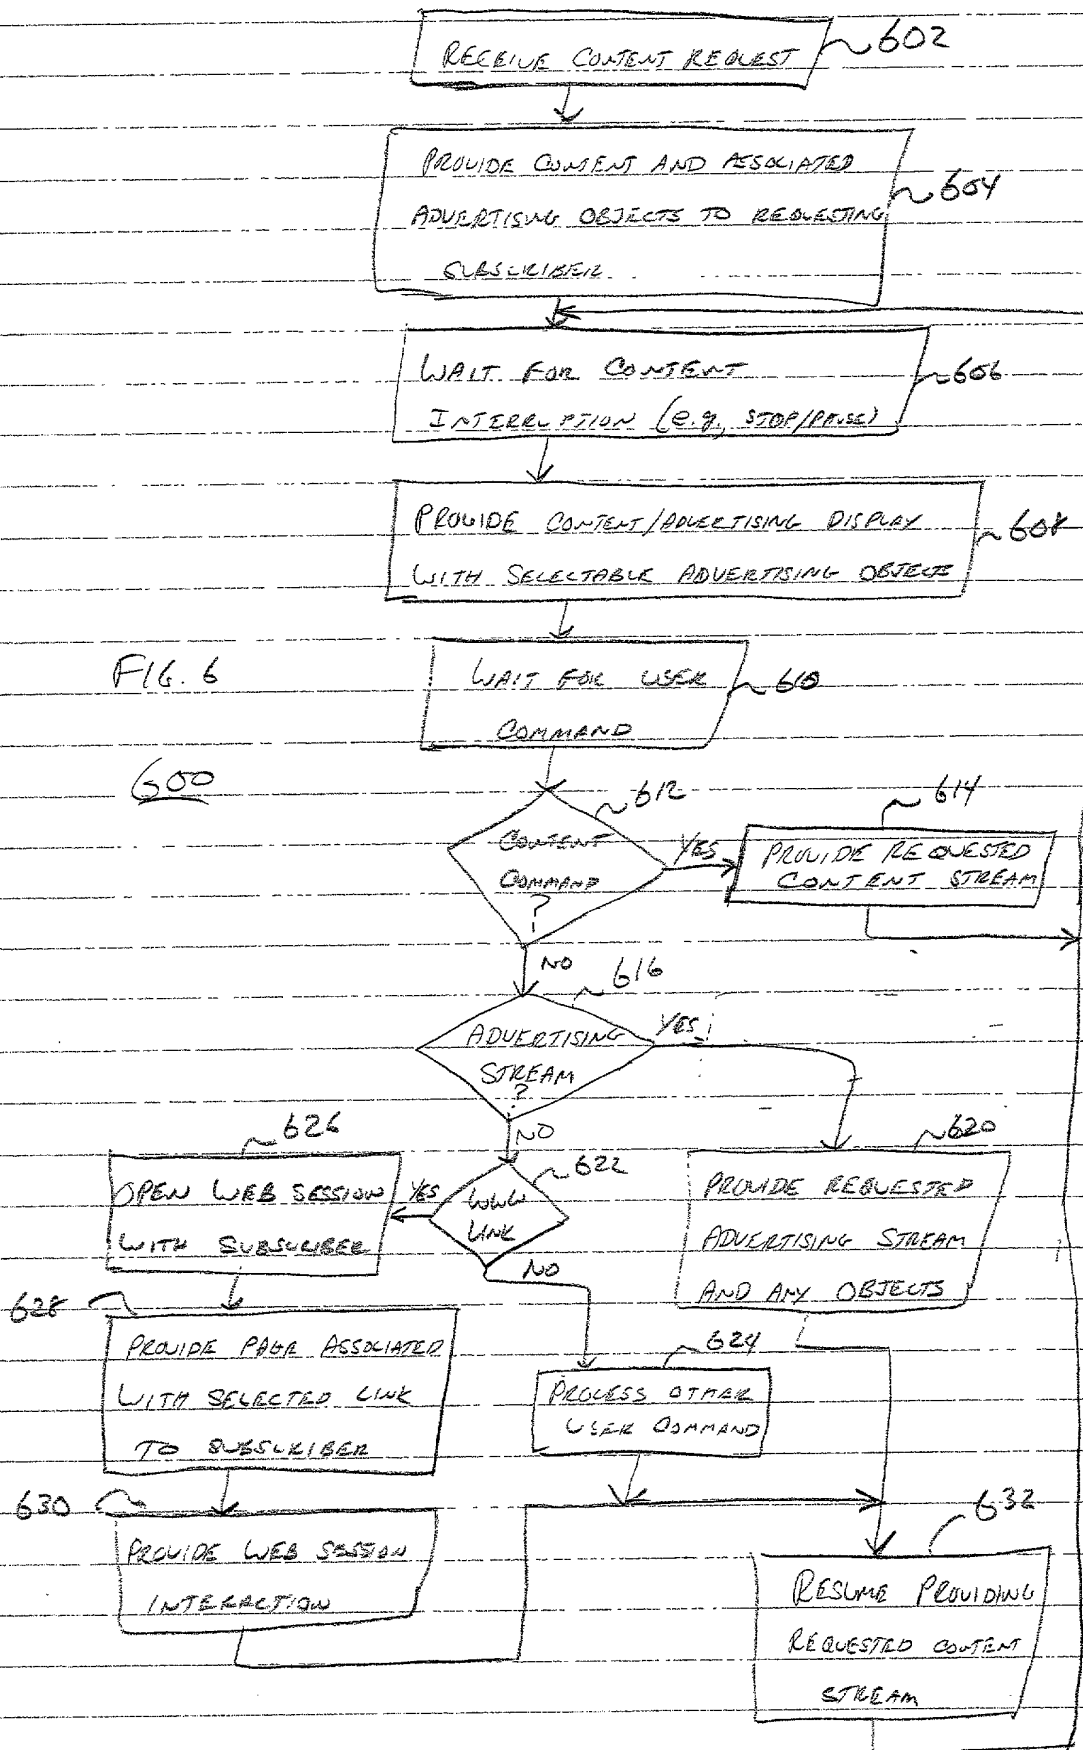 RECEIVE CONTENT REQUEST
602
PROVIDE CONTENT AND ASSOCIATED
ADVERTISING OBJECTS TO REQUESTING
SUBSCRIBER
604
WAIT FOR CONTENT
INTERRUPTION (e.g., STOP/PAUSE)
606
PROVIDE CONTENT/ADVERTISING DISPLAY
WITH SELECTABLE ADVERTISING OBJECTS
608
FIG. 6
WAIT FOR USER
COMMAND
610
600
612
CONTENT
COMMAND
?
YES
614
PROVIDE REQUESTED
CONTENT STREAM
NO
616
ADVERTISING
STREAM
?
YES
NO
626
OPEN WEB SESSION
WITH SUBSCRIBER
YES
622
WWW
LINK
NO
620
PROVIDE REQUESTED
ADVERTISING STREAM
AND ANY OBJECTS
628
PROVIDE PAGE ASSOCIATED
WITH SELECTED LINK
TO SUBSCRIBER
624
PROCESS OTHER
USER COMMAND
630
PROVIDE WEB SESSION
INTERACTION
632
RESUME PROVIDING
REQUESTED CONTENT
STREAM